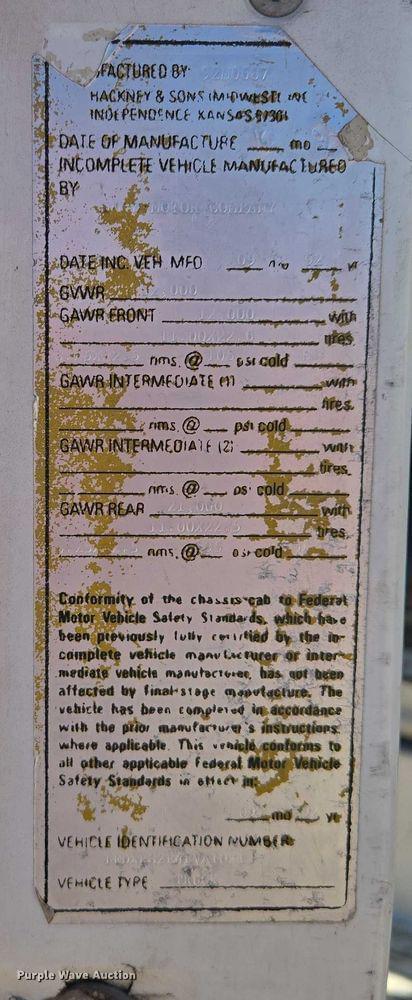 FACTURED BY
HACKNEY & SONS (MIDWEST) INC
INDEPENDENCE KANSAS 67301
DATE OF MANUFACTURE ___ mo __
INCOMPLETE VEHICLE MANUFACTURED
BY
MOTOR COMPANY
DATE INC. VEH MFD ___ mo ___ yr
GVWR
GAWR FRONT 12,000 with
11.00X22.5 tires
rims @ 105 psi cold
GAWR INTERMEDIATE (1) with
tires
rims @ psi cold
GAWR INTERMEDIATE (2) with
tires
rims @ psi cold
GAWR REAR 21,000 with
11.00X22.5 tires
rims @ psi cold
Conformity of the chassis-cab to Federal
Motor Vehicle Safety Standards, which have
been previously fully certified by the in-
complete vehicle manufacturer or inter-
mediate vehicle manufacturer, has not been
affected by final-stage manufacture. The
vehicle has been completed in accordance
with the prior manufacturer's instructions,
where applicable. This vehicle conforms to
all other applicable Federal Motor Vehicle
Safety Standards in effect in:
mo yr
VEHICLE IDENTIFICATION NUMBER:
VEHICLE TYPE
Purple Wave Auction